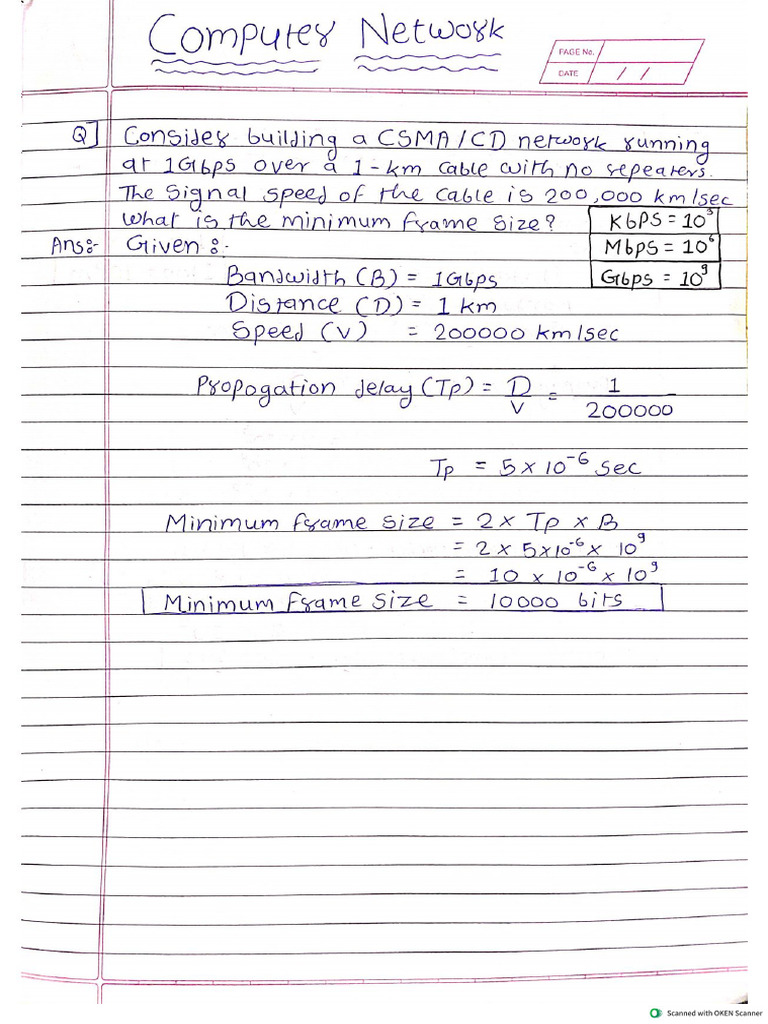 Computer Network
PAGE No.
DATE / /
Q] Consider building a CSMA/CD network running
at 1Gbps over a 1-km cable with no repeaters.
The signal speed of the cable is 200,000 km/sec
what is the minimum frame size?
Kbps = 10³
Mbps = 10⁶
Gbps = 10⁹
Ans:- Given :-
Bandwidth (B) = 1Gbps
Distance (D) = 1 km
Speed (V) = 200000 km/sec
Propogation delay (Tp) = D/V = 1/200000
Tp = 5 × 10⁻⁶ sec
Minimum frame size = 2 × Tp × B
= 2 × 5×10⁻⁶ × 10⁹
= 10 × 10⁻⁶ × 10⁹
Minimum frame size = 10000 bits
Scanned with OKEN Scanner